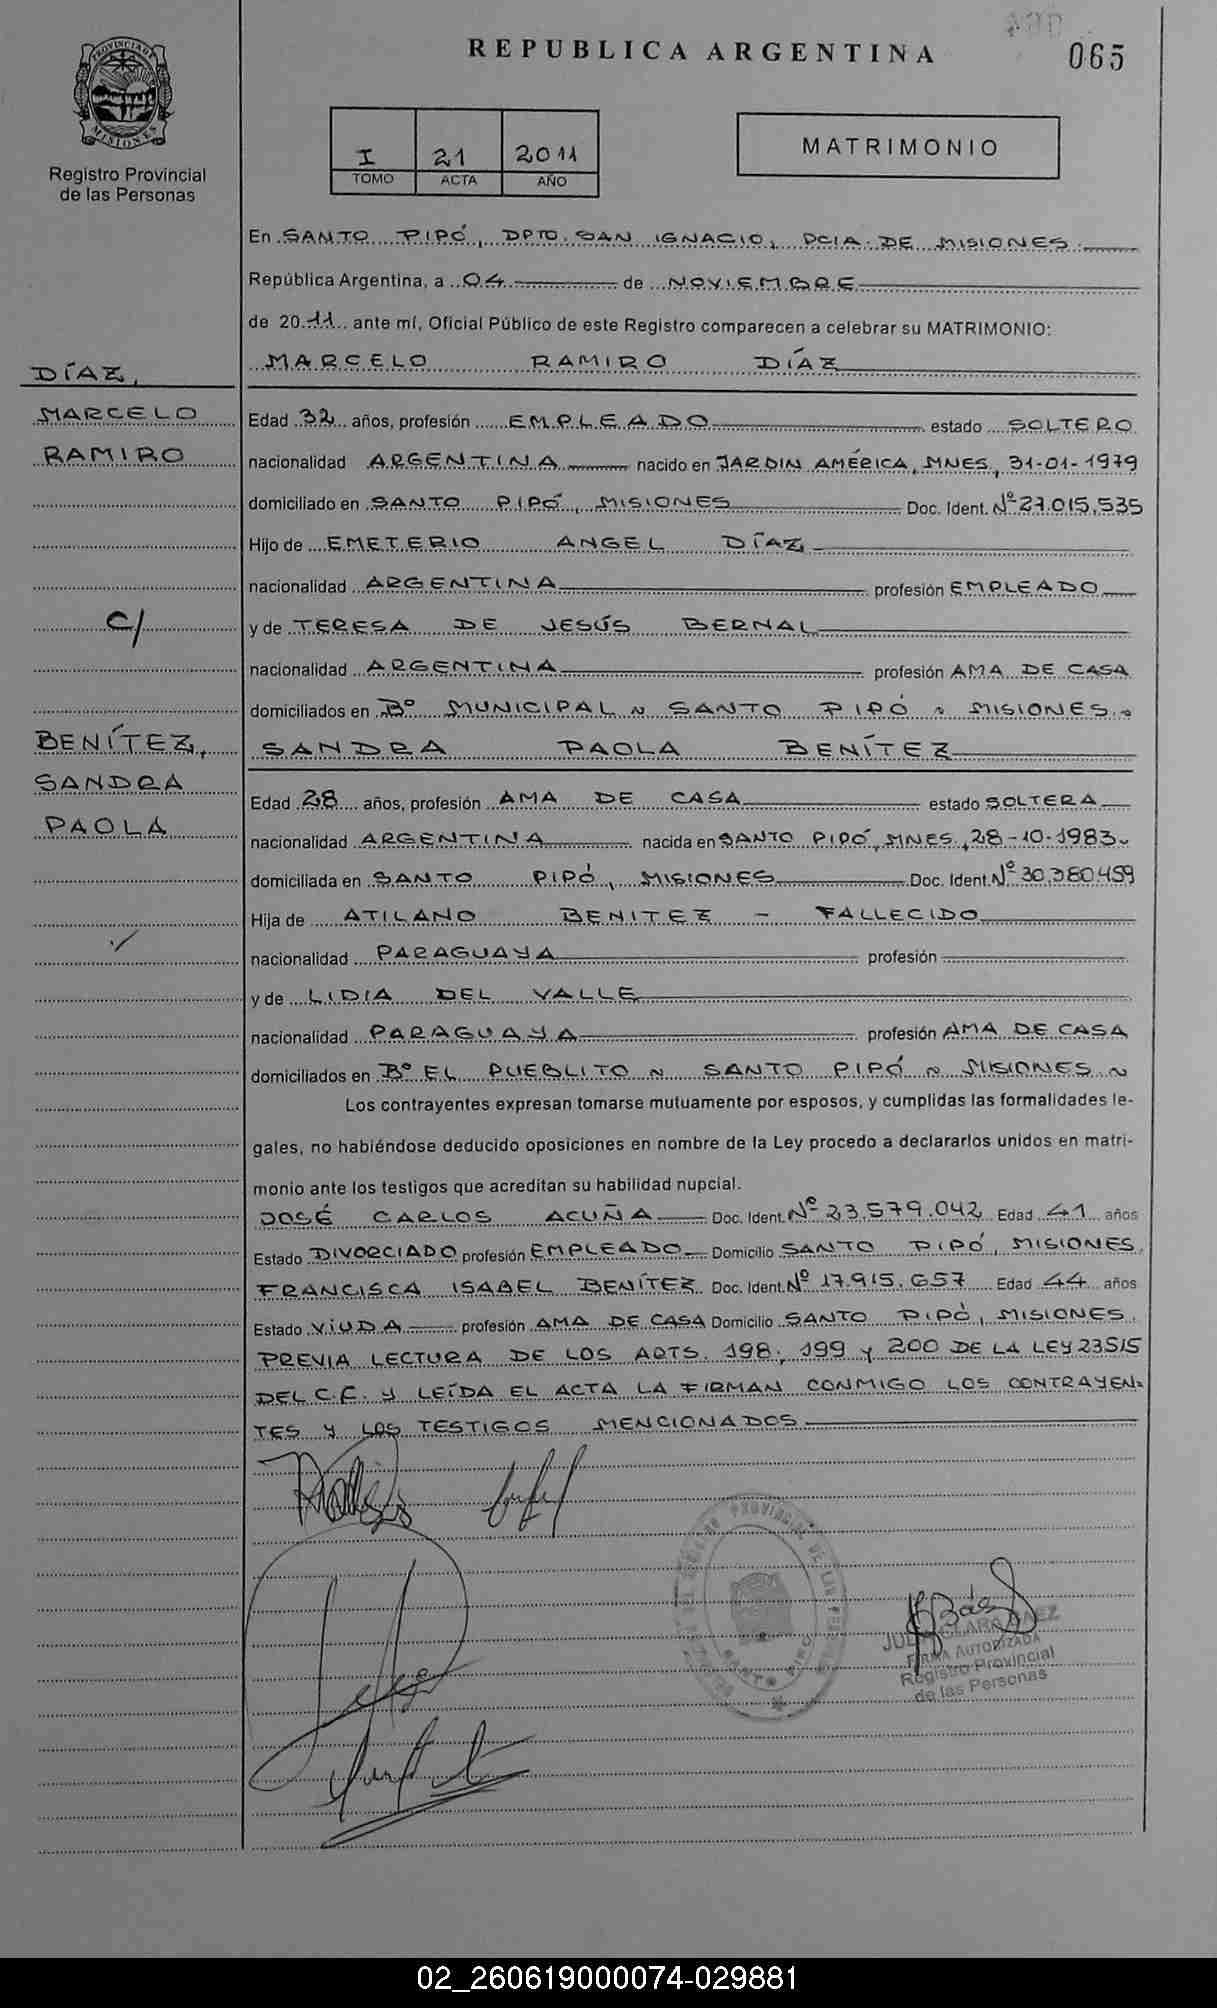 REPUBLICA ARGENTINA
065
PROVINCIA DE
MISIONES
Registro Provincial
de las Personas
I 21 2011
TOMO ACTA AÑO
MATRIMONIO
En SANTO PIPÓ, DPTO. SAN IGNACIO, PCIA. DE MISIONES.
República Argentina, a 04 de NOVIEMBRE
de 2011 ante mí, Oficial Público de este Registro comparecen a celebrar su MATRIMONIO:
MARCELO RAMIRO DÍAZ
DÍAZ,
MARCELO
RAMIRO
C/
BENÍTEZ,
SANDRA
PAOLA
Edad 32 años, profesión EMPLEADO estado SOLTERO
nacionalidad ARGENTINA nacido en JARDIN AMÉRICA, MNES, 31-01-1979
domiciliado en SANTO PIPÓ, MISIONES Doc. Ident. Nº 27.015.535
Hijo de EMETERIO ANGEL DÍAZ
nacionalidad ARGENTINA profesión EMPLEADO
y de TERESA DE JESÚS BERNAL
nacionalidad ARGENTINA profesión AMA DE CASA
domiciliados en Bº MUNICIPAL ~ SANTO PIPÓ ~ MISIONES ~
SANDRA PAOLA BENÍTEZ
Edad 28 años, profesión AMA DE CASA estado SOLTERA
nacionalidad ARGENTINA nacida en SANTO PIPÓ, MNES, 28-10-1983
domiciliada en SANTO PIPÓ, MISIONES Doc. Ident. Nº 30.380.459
Hija de ATILANO BENITEZ - FALLECIDO
nacionalidad PARAGUAYA profesión
y de LIDIA DEL VALLE
nacionalidad PARAGUAYA profesión AMA DE CASA
domiciliados en Bº EL PUEBLITO ~ SANTO PIPÓ ~ MISIONES ~
Los contrayentes expresan tomarse mutuamente por esposos, y cumplidas las formalidades le-
gales, no habiéndose deducido oposiciones en nombre de la Ley procedo a declararlos unidos en matri-
monio ante los testigos que acreditan su habilidad nupcial.
JOSÉ CARLOS ACUÑA Doc. Ident. Nº 23.579.042 Edad 41 años
Estado DIVORCIADO profesión EMPLEADO Domicilio SANTO PIPÓ, MISIONES.
FRANCISCA ISABEL BENÍTEZ Doc. Ident. Nº 17.915.657 Edad 44 años
Estado VIUDA profesión AMA DE CASA Domicilio SANTO PIPÓ, MISIONES.
PREVIA LECTURA DE LOS ARTS. 198, 199 y 200 DE LA LEY 23515
DEL C.C. Y LEÍDA EL ACTA LA FIRMAN CONMIGO LOS CONTRAYEN-
TES Y LOS TESTIGOS MENCIONADOS
SANTO PIPO
CLARA BAEZ
FIRMA AUTORIZADA
Registro Provincial
de las Personas
02_260619000074-029881